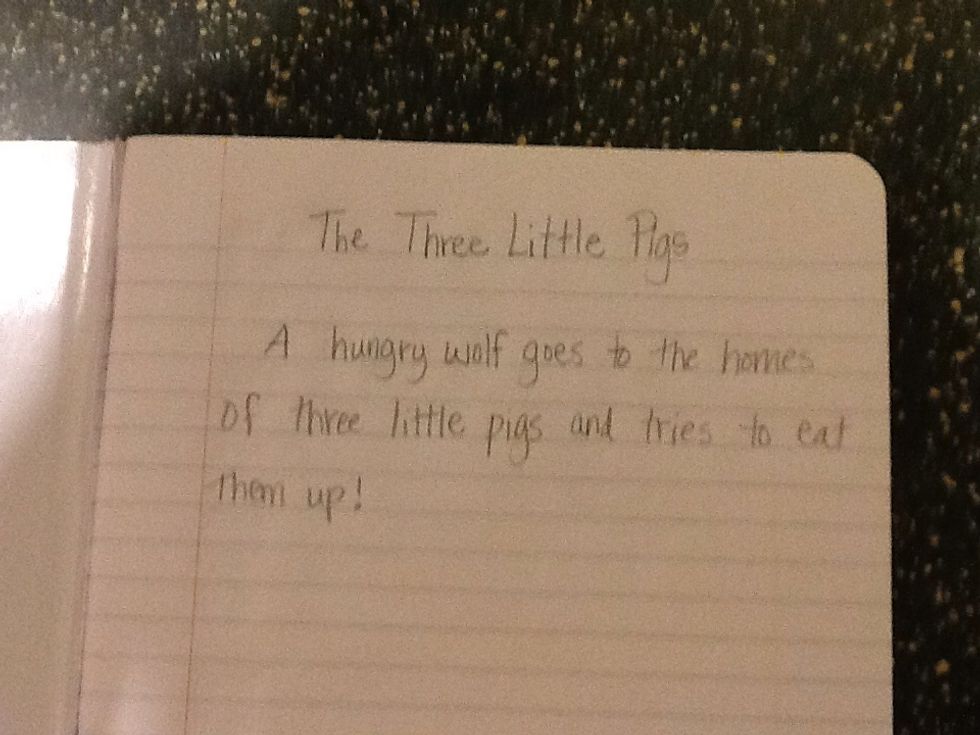 The Three Little Pigs
A hungry wolf goes to the homes
of three little pigs and tries to eat
them up!